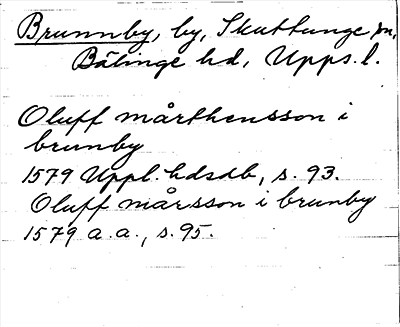 Brunnby, by, Skuttunge sn,
Bälinge hd, Upps. l.
Oluff mårthensson i
brunby
1579 Uppl. hdsdb, s. 93.
Oluff mårsson i brunby
1579 a. a., s. 95.